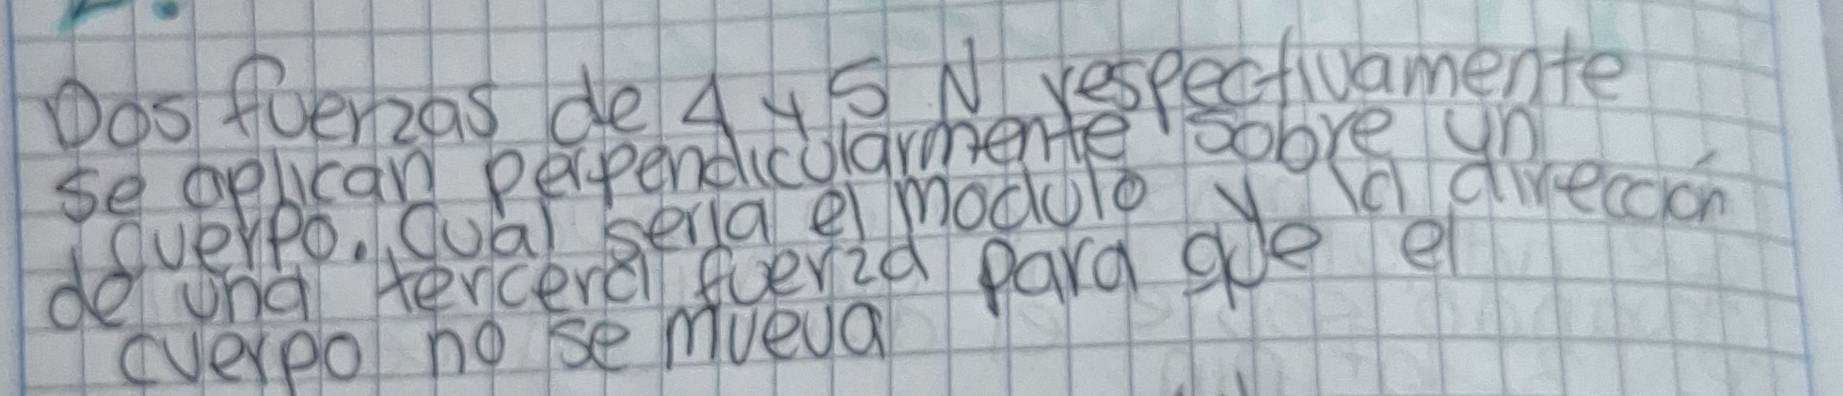 Dos fuerzas de 4 y 5 N respectivamente
se aplican perpendicularmente sobre un
cuerpo. Cual seria el modulo y la dirección
de una tercera fuerza para que el
cuerpo no se mueva